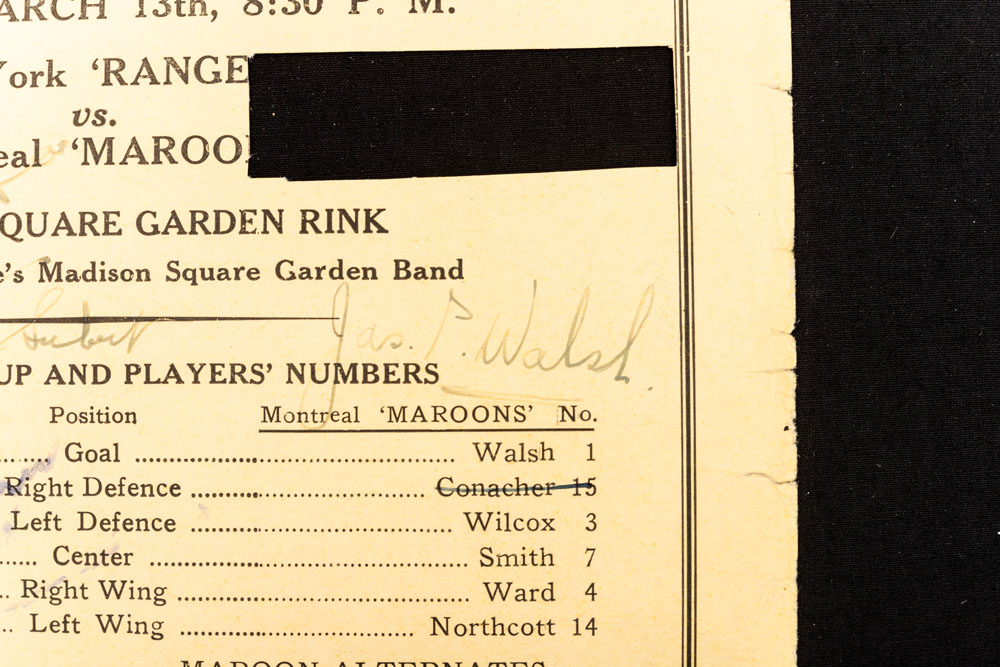 ARCH 13th, 8:30 P. M.
York 'RANGE
vs.
eal 'MAROO
QUARE GARDEN RINK
e's Madison Square Garden Band
Jas. P. Walsh.
UP AND PLAYERS' NUMBERS
Position Montreal 'MAROONS' No.
Goal Walsh 1
Right Defence Conacher 15
Left Defence Wilcox 3
Center Smith 7
Right Wing Ward 4
Left Wing Northcott 14
MAROON ALTERNATES